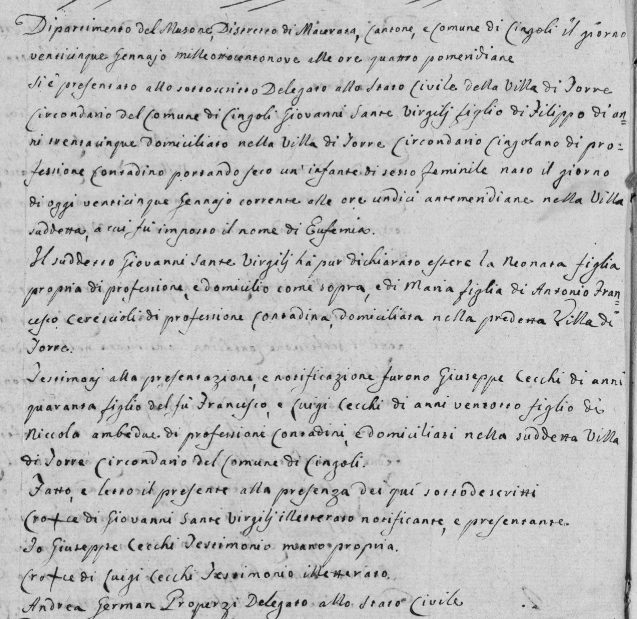 Dipartimento del Musone, Distretto di Macerata, Cantone, e Comune di Cingoli il giorno
venticinque Gennajo milleottocentonove alle ore quattro pomeridiane
Si è presentato allo sottoscritto Delegato allo Stato Civile della Villa di Torre
Circondario del Comune di Cingoli Giovanni Sante Virgilj figlio di Filippo di an=
ni trentacinque domiciliato nella Villa di Torre Circondario Cingolano di pro=
fessione Contradino portando seco un' infante di sesso feminile nato il giorno
di oggi venticinque Gennajo corrente alle ore undici antemeridiane nella Villa
suddetta, a cui fù imposto il nome di Eufemia.
Il suddetto Giovanni Sante Virgilj hà pur dichiarato essere la Neonata figlia
propria di professione, e domicilio come sopra, e di Maria figlia di Antonio Fran=
cesco Ceresuoli di professione Contradina, domiciliata nella predetta Villa di
Torre.
Testimonj alla presentazione, e notificazione furono Giuseppe Cecchi di anni
quaranta figlio del fù Francesco, e Luigi Cecchi di anni ventotto figlio di
Niccola ambedue di professione Contradini, e domiciliati nella suddetta Villa
di Torre Circondario del Comune di Cingoli.
Fatto, e letto il presente alla presenza dei quì sottodescritti
Cro+ce di Giovanni Sante Virgilj illetterato notificante, e presentante.
Io Giuseppe Cecchi Testimonio mano propria.
Cro+ce di Luigi Cecchi Testimonio illetterato.
Andrea German Properzi Delegato allo Stato Civile